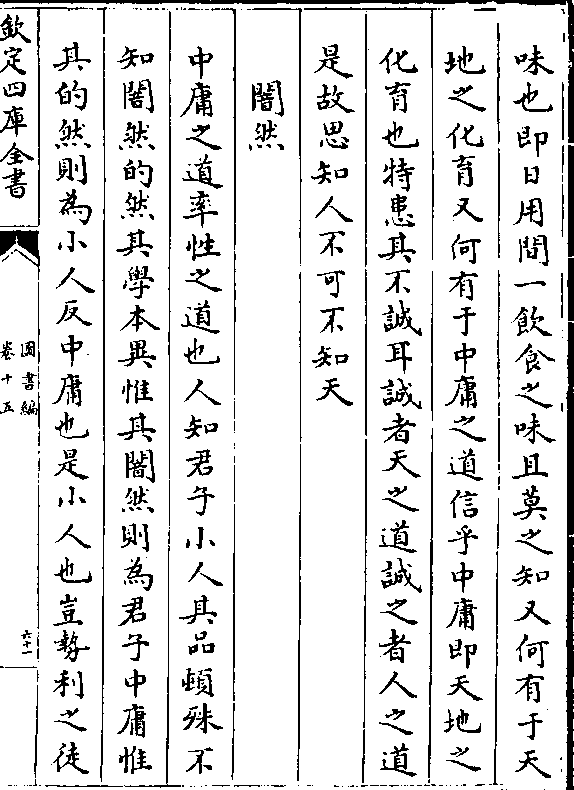 味也即日用間一飲食之味且莫之知又何有于天
地之化育又何有于中庸之道信乎中庸即天地之
化育也特患其不誠耳誠者天之道誠之者人之道
是故思知人不可不知天
闇然
中庸之道率性之道也人知君子小人其品頓殊不
知闇然的然其學本異惟其闇然則為君子中庸惟
其的然則為小人反中庸也是小人也豈勢利之徒
欽定四庫全書
圖書編
卷十五
六十一